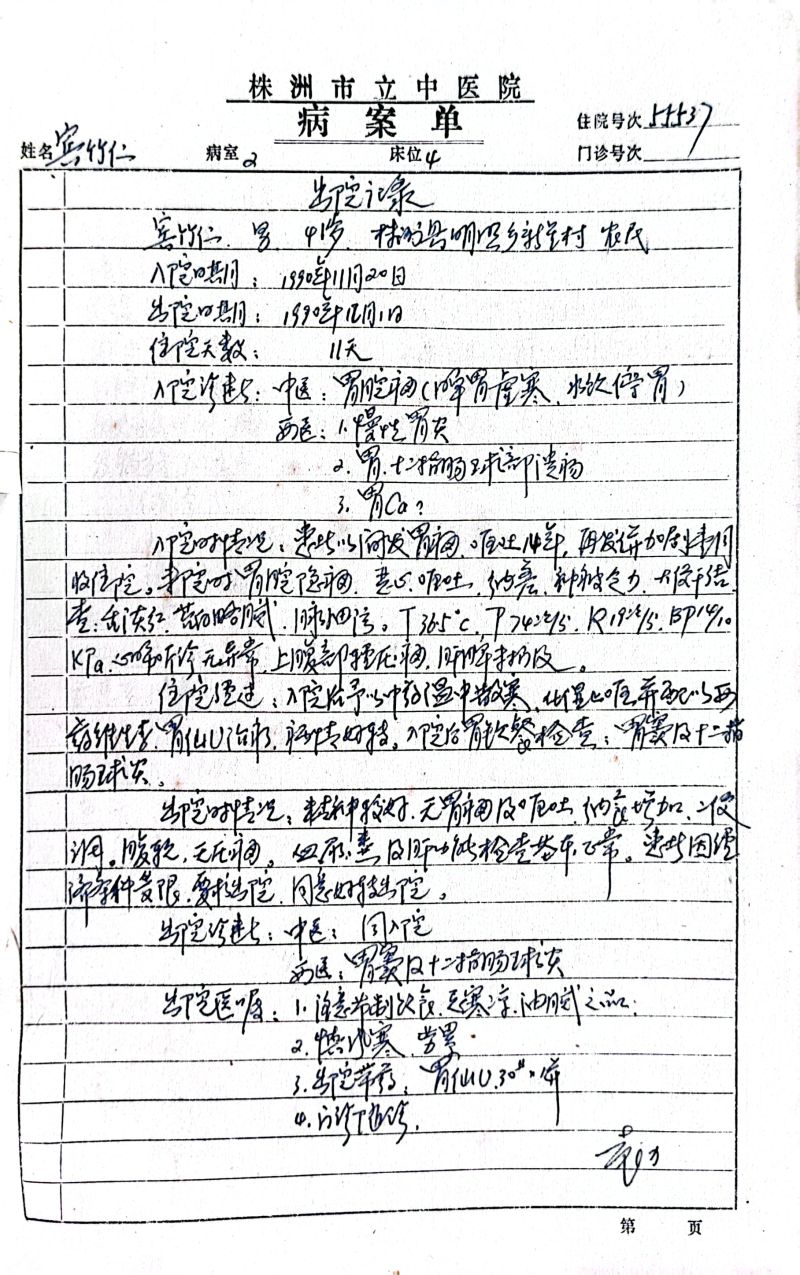 株洲市立中医院
病案单
住院号次 55537
姓名 宾竹仁 病室 2 床位 4 门诊号次
出院记录
宾竹仁 男 41岁 株洲县明照乡 村 农民
入院日期: 1990年11月20日
出院日期: 1990年12月1日
住院天数: 11天
入院诊断: 中医: 胃脘痛(脾胃虚寒、水饮停胃)
西医: 1. 慢性胃炎
2. 胃、十二指肠球部溃疡
3. 胃Ca?
入院时情况: 患者以间发胃痛、呕吐14年, 再发并加剧 
收住院。来院时胃脘隐痛, 恶心呕吐, 纳差, 神疲乏力, 大便干结
查: 舌淡红, 苔白略腻, 脉细弦。T 36.5℃, P 74次/分, R 19次/分, BP 14/10
KPa, 心肺听诊无异常, 上腹部轻压痛, 肝脾未扪及。
住院经过: 入院后予以中药温中散寒, 化湿止呕并配以西
药维生素、胃仙U治疗, 病情好转。入院后胃钡餐检查: 胃窦及十二指
肠球炎。
出院时情况: 患者精神较好, 无胃痛及呕吐, 纳食增加, 二便
调。腹软, 无压痛。血尿粪及肝功能检查基本正常。患者因经
济条件受限, 要求出院, 同意好转出院。
出院诊断: 中医: 同入院
西医: 胃窦及十二指肠球炎
出院医嘱: 1. 注意节制饮食, 忌寒凉、油腻之品.
2. 慎风寒、劳累
3. 出院带药: 胃仙U 30# × 1瓶
4. 门诊随诊.
第 页